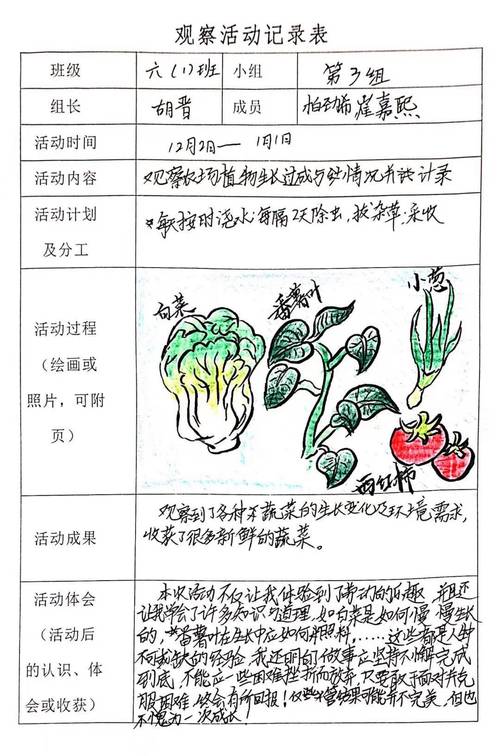 观察活动记录表
班级 六(1)班 小组 第3组
组长 胡晋 成员 崔嘉熙
活动时间 12月2日— 1月1日
活动内容 观察农场植物生长过成与 情况并 记录
活动计划及分工 按时浇水 每隔2天除虫,拔杂草,采收
活动过程
(绘画或
照片,可附
页)
白菜
番薯叶
小葱
西红柿
活动成果
观察到了各种不 蔬菜的生长变化及环境需求,
收获了很多新鲜的蔬菜。
活动体会
(活动后
的认识、体
会或收获)
本次活动不仅让我体验到了劳动的乐趣 并且还
让我学会了许多知识与道理,如白菜是如何慢慢生长
的,番薯叶在生长中应如何照料,……这些都是人生中
不可或缺的经验 我还明白了做事应坚持不懈完成
到底,不能 一些困难挫折而放弃,只要敢于面对并克
服困难,终会有所回报! 结果可能并不完美,但也
不愧为一次成长!